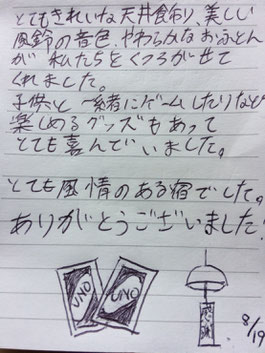 とてもきれいな天井飾り、美しい
風鈴の音色、やわらかなおふとん
が私たちをくつろがせて
くれました。
子供と一緒にゲームしたりなど
楽しめるグッズもあって
とても喜んでいました。
とても風情のある宿でした。
ありがとうございました!
UNO UNO
8/19